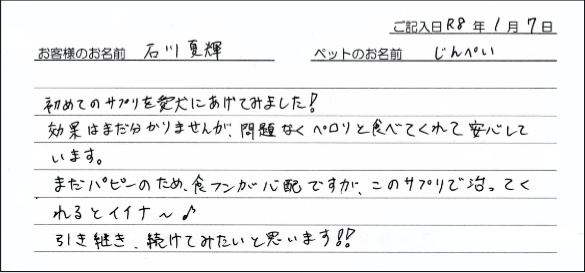 ご記入日 R8 年 1 月 7 日
お客様のお名前 石川 夏輝 ペットのお名前 じんぺい
初めてのサプリを愛犬にあげてみました!
効果はまだ分かりませんが、問題なくペロリと食べてくれて安心して
います。
まだパピーのため、食フンが心配ですが、このサプリで治ってく
れるとイイナ〜♪
引き継き、続けてみたいと思います!!